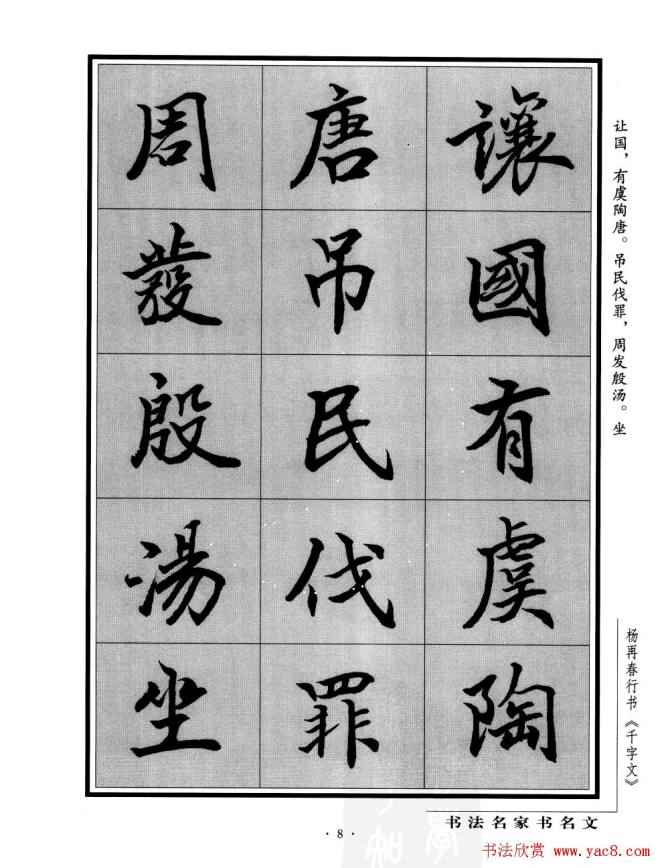 讓國有虞陶
唐吊民伐罪
周發殷湯坐
让国，有虞陶唐。吊民伐罪，周发殷汤。坐
杨再春行书《千字文》
书法名家书名文
·8·
书法欣赏 www.yac8.com